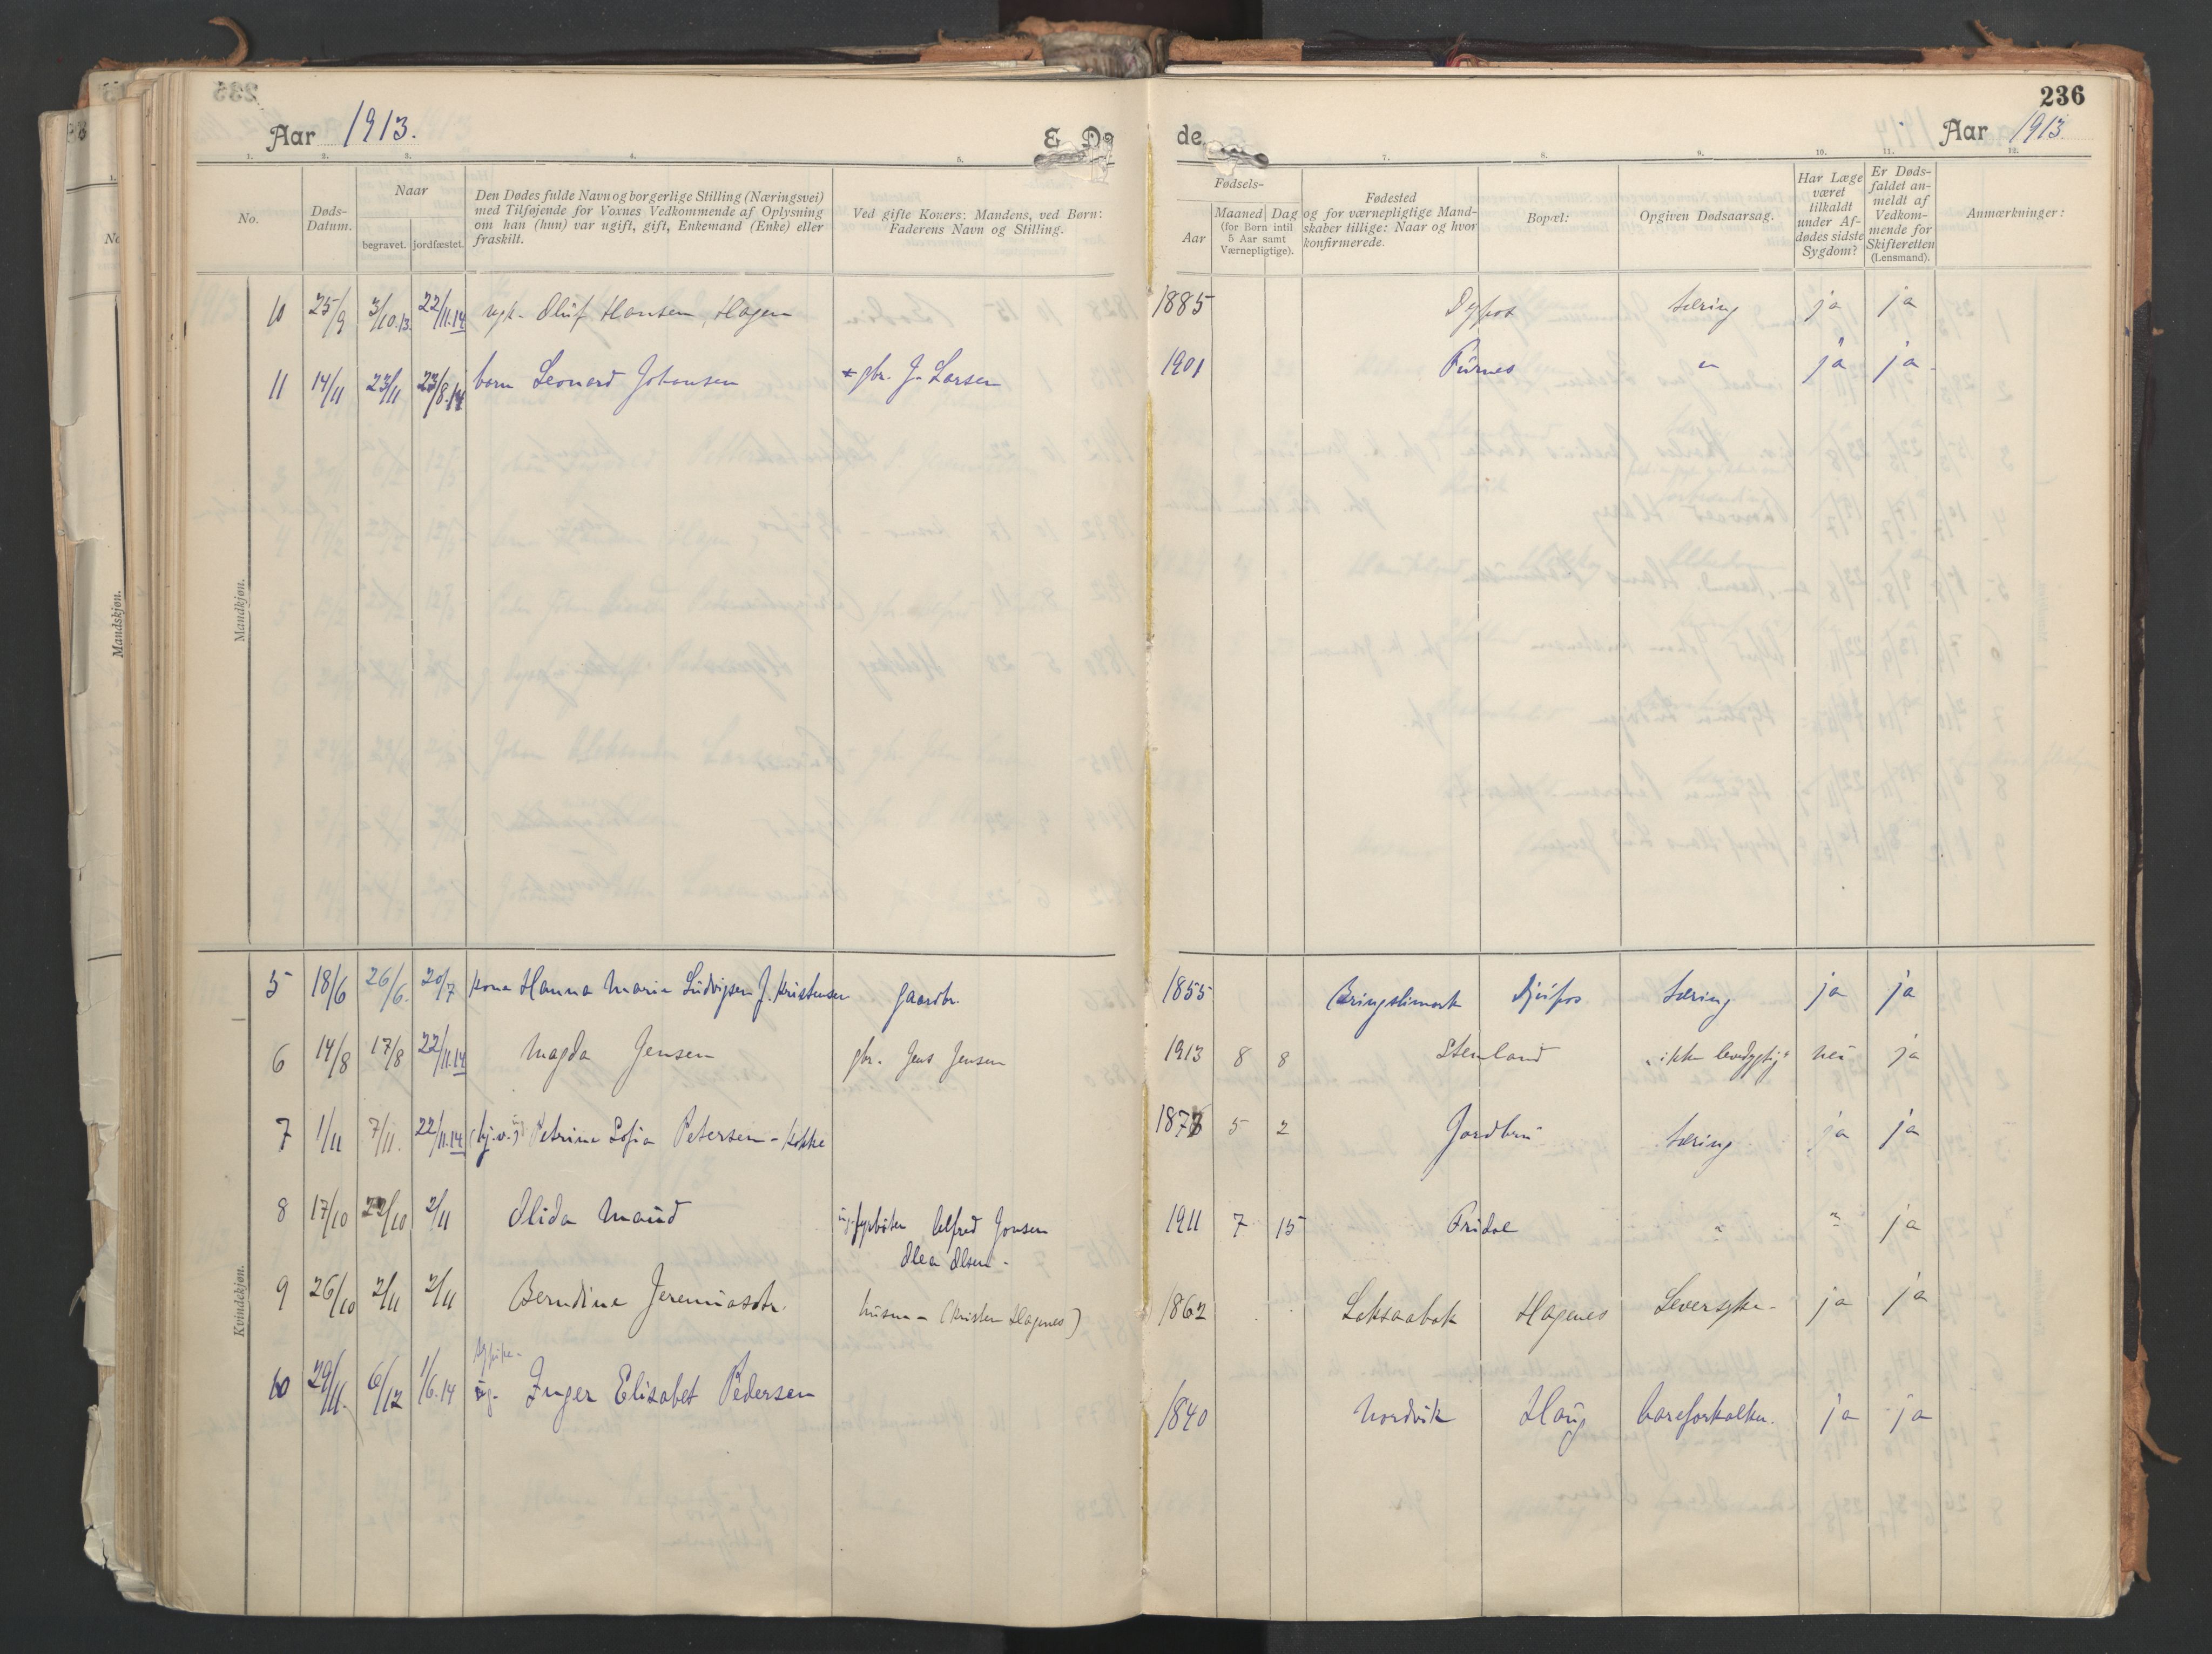 236
Aar 1913.
E. Dø
de
Aar 1913
1. 2. 3. 4. 5. 7. 8. 9. 10. 11. 12.
No.
Døds-
Datum.
Naar
begravet. jordfæstet.
Den Dødes fulde Navn og borgerlige Stilling (Næringsvei)
med Tilføjende for Voxnes Vedkommende af Oplysning
om han (hun) var ugift, gift, Enkemand (Enke) eller
fraskilt.
Ved gifte Koners: Mandens, ved Børn:
Faderens Navn og Stilling.
Fødsels-
Aar
Maaned
(for Børn intil
5 Aar samt
Værnepligtige).
Dag
Fødested
og for værnepligtige Mand-
skaber tillige: Naar og hvor
konfirmerede.
Bopæl:
Opgiven Dødsaarsag.
Har Læge
været
tilkaldt
under Af-
dødes sidste
Sygdom?
Er Døds-
faldet an-
meldt af
Vedkom-
mende for
Skifteretten
(Lensmand).
Anmærkninger:
Mandskjøn.
Mandkjøn.
10 25/9 3/10.13 22/11.14 ugk. Oluf Hansen, Hagen 1885 Dypfos tæring ja ja
11 14/11 23/11 23/8.14 barn Leonard Johansen gbr. J. Larsen 1901 Furnes " ja ja
Kvindekjøn.
5 18/6 26/6. 20/7 kona Hanna Marie Ludvigsen J. Kristensen gaardbr. 1855 Bringslimark Djupfos tæring ja ja
6 14/8 17/8 22/11.14 Magda Jensen gbr. Jens Jensen 1913 8 8 Stenland "ikke levedygtig" nei ja
7 1/11 7/11. 22/11.14 Petrine Sofia Petersen - Kokke 1878 5 2 Jordbru tæring ja ja
8 17/10 22/10 2/11 Olida Maud ug. fyrbøter Alfred Jonsen 1911 7 15 Bridal " " ja
Olea Olsen -
9 26/10 2/11 2/11 Berndine Jeremiasdtr. husm - (Kristen Hagenes) 1862 Loksaabak Hagenes Leversyke - ja ja
10 29/11. 6/12 1/6.14 ug. Inger Elisabet Pedersen 1840 Nordvik Haug aareforkalkn. ja ja